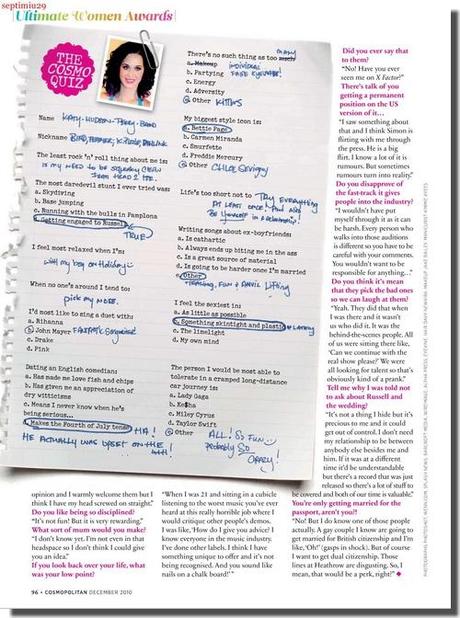 septimiu29
Ultimate Women Awards
THE
COSMO
QUIZ
Name KATY-HUDSON-PERRY-BRAND
Nickname
The least rock 'n' roll thing about me is:
is my need to be squeaky clean
from Head 2 toe.
The most daredevil stunt I ever tried was:
a. Skydiving
b. Base jumping
c. Running with the bulls in Pamplona
d. Getting engaged to Russell
TRUE
I feel most relaxed when I'm:
with my boy on Holiday
When no one's around I tend to:
pick my nose.
I'd most like to sing a duet with:
a. Rihanna
b. John Mayer FANTASTIC Songwriter
c. Drake
d. Pink
Dating an English comedian:
a. Has made me love fish and chips
b. Has given me an appreciation of
dry witticisms
c. Means I never know when he's
being serious...
d. Makes the Fourth of July tense HA!
HE ACTUALLY WAS UPSET ON the
4th!
There's no such thing as too much MANY
a. Makeup INDIVIDUAL
b. Partying FAKE EYELASHES!
c. Energy
d. Adversity
Other KITTENS
My biggest style icon is:
a. Bettie Page
b. Carmen Miranda
c. Smurfette
d. Freddie Mercury
Other Chloe Sevigny
Life's too short not to TRY EVERYTHING
AT LEAST ONCE AND ALSO
Be Yourself in a Relationship!
Writing songs about ex-boyfriends:
a. Is cathartic
b. Always ends up biting me in the ass
c. Is a great source of material
d. Is going to be harder once I'm married
Other
FUN &
I feel the sexiest in:
a. As little as possible
b. Something skintight and plastic
c. The limelight
d. My own mind
The person I would be most able to
tolerate in a cramped long-distance
car journey is:
a. Lady Gaga
b. Ke$ha
c. Miley Cyrus
d. Taylor Swift
Other ALL! So FUN...
Probably SO
CRAZY!
Did you ever say that
to them?
"No! Have you ever
seen me on X Factor?"
There's talk of you
getting a permanent
position on the US
version of it…
"I saw something about
that and I think Simon is
flirting with me through
the press. He is a big
flirt. I know a lot of it is
rumours. But sometimes
rumours turn into reality."
Do you disapprove of
the fast-track it gives
people into the industry?
"I wouldn't have put
myself through it as it can
be harsh. Every person who
walks into those auditions
is different so you have to be
careful with your comments.
You wouldn't want to be
responsible for anything…"
Do you think it's mean
that they pick the bad ones
so we can laugh at them?
"Yeah. They did that when
I was there and it wasn't
us who did it. It was the
behind-the-scenes people. All
of us were sitting there like,
'Can we continue with the
real show please?' We were
all looking for talent so that's
obviously kind of a prank."
Tell me why I was told not
to ask about Russell and
the wedding?
"It's not a thing I hide but it's
precious to me and it could
get out of control. I don't need
my relationship to be between
anybody else besides me and
him. If it was at a different
time it'd be understandable
but there's a record that was just
released so there's a lot of stuff to
be covered and both of our time is valuable."
You're only getting married for the
passport, aren't you?!
"No! But I do know one of those people
actually. A gay couple I know are going to
get married for British citizenship and I'm
like, 'Oh!' (gasps in shock). But of course
I want to get dual citizenship. Those
lines at Heathrow are disgusting. So, I
mean, that would be a perk, right?"
opinion and I warmly welcome them but I
think I have my head screwed on straight."
Do you like being so disciplined?
"It's not fun! But it is very rewarding."
What sort of mum would you make?
"I don't know yet. I'm not even in that
headspace so I don't think I could give
you an idea."
If you look back over your life, what
was your low point?
"When I was 21 and sitting in a cubicle
listening to the worst music you've ever
heard at this really horrible job where I
would critique other people's demos.
I was like, 'How do I give you advice? I
know everyone in the music industry.
I've done other labels. I think I have
something unique to offer and it's not
being recognised. And you sound like
nails on a chalk board!'"
96 • COSMOPOLITAN DECEMBER 2010